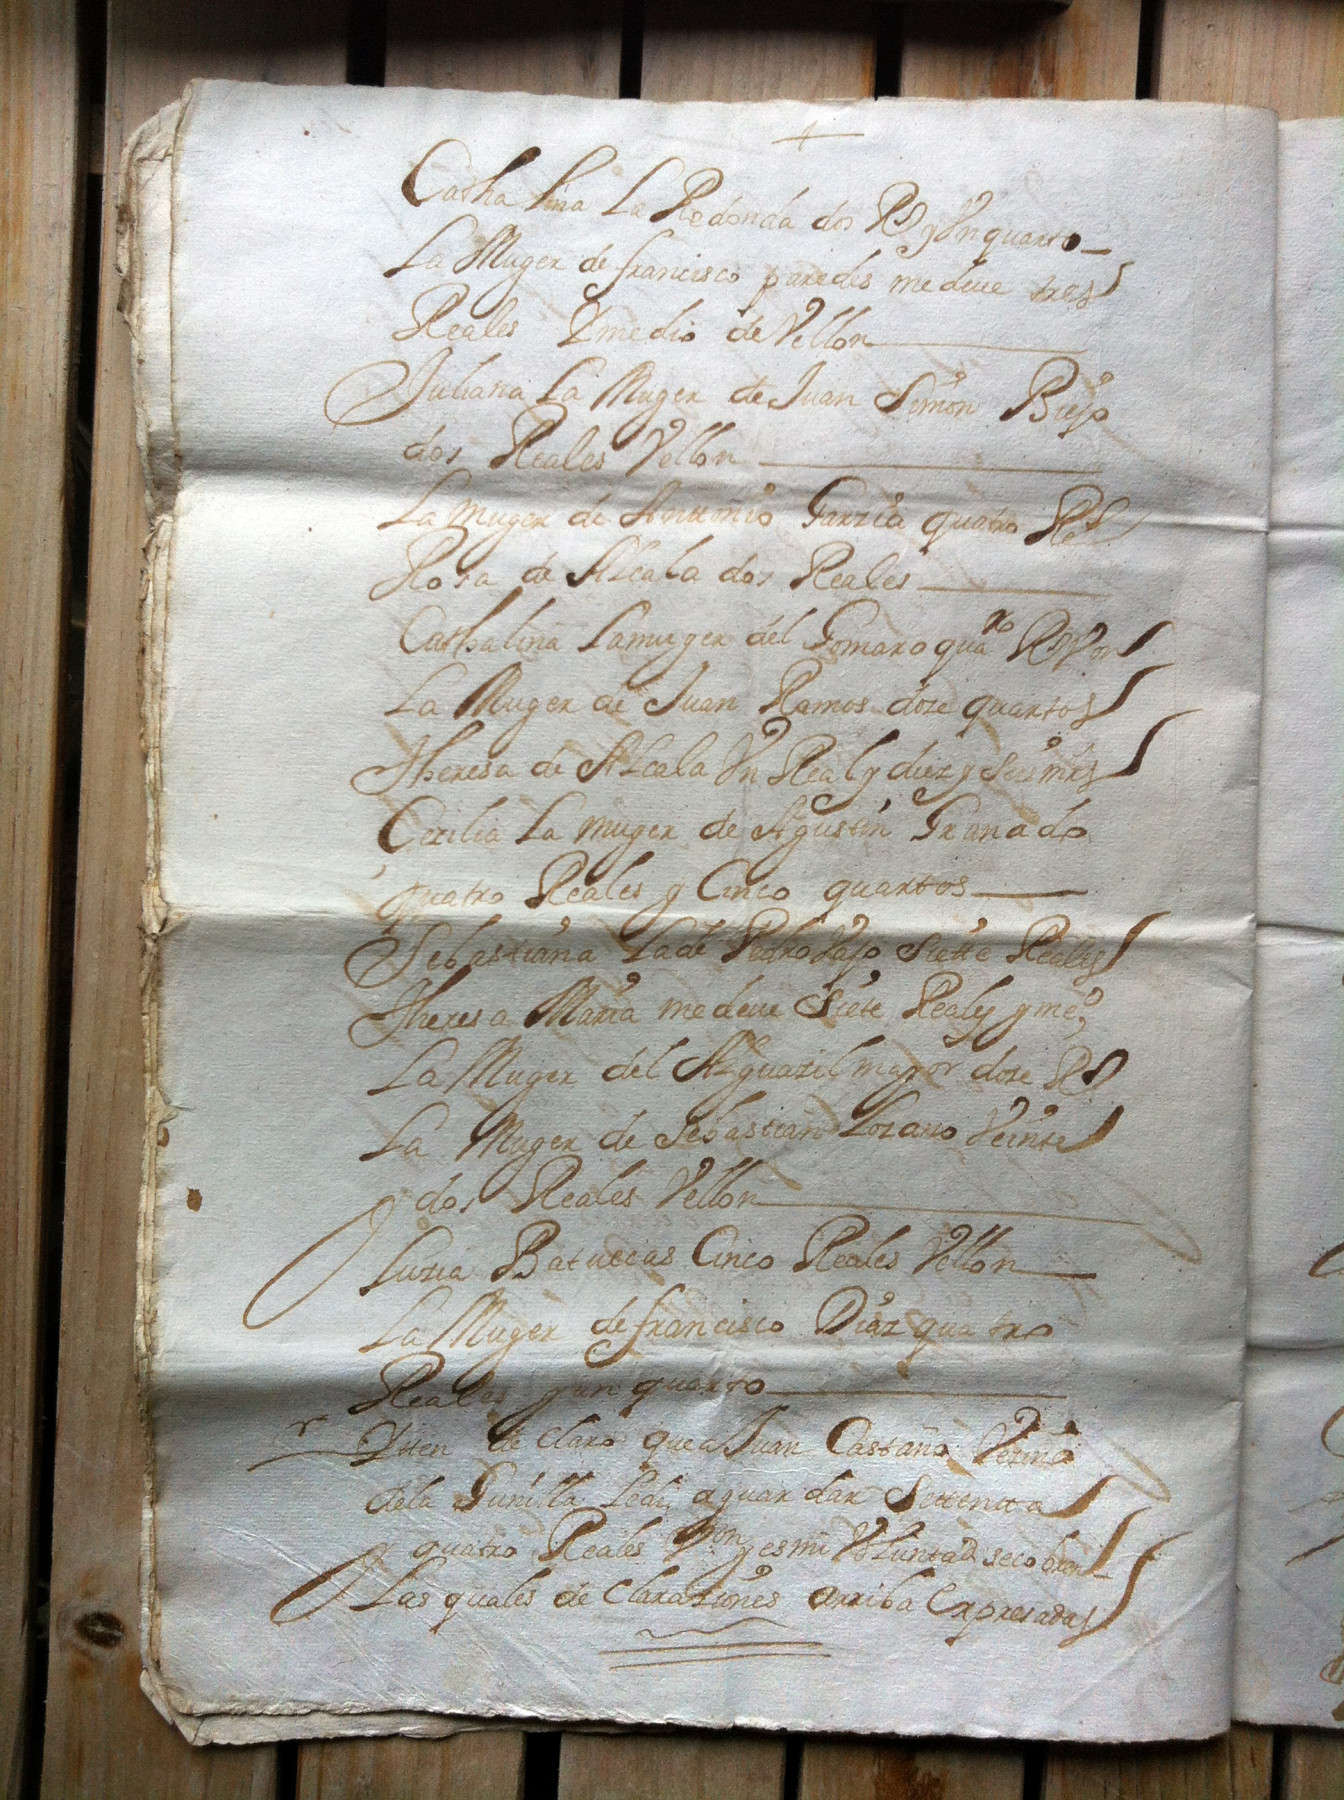 +
Cathalina La Redonda dos Rs y Vn quarto
La Muger de francisco paredes me deve tres
Reales Y medio de Vellon
Juliana La Muger de Juan Simon Biejo
dos Reales Vellon
La muger de Anttonio Garzia quatro Rs
Rosa de Alcala dos Reales
Cathalina La muger del Gomaro quatro Rs Von
La Muger de Juan Ramos doze quartos
Theresa de Alcala Vn Real y diez y seis mrs
Cezilia La muger de Agustin Granado
quatro Reales y Cinco quartos
Sebastiana La de Pedro Lajo Siette Reales
Theresa Maria me deve Siete Reales y mео
La Muger del Alguazil mayor doze Rs
La Muger de Sebastian Lozano Veinte
dos Reales Vellon
Luzia Batuecas Cinco Reales Vellon
La Muger de francisco Diaz quatro
Reales y un quarto
Ytten de claro que a Juan Castaño Vezino
de la Gunilla Le di a guardar Settenta
y quatro Reales Von y es mi Voluntad se cobren
Las quales de claraziones arriba Expresadas